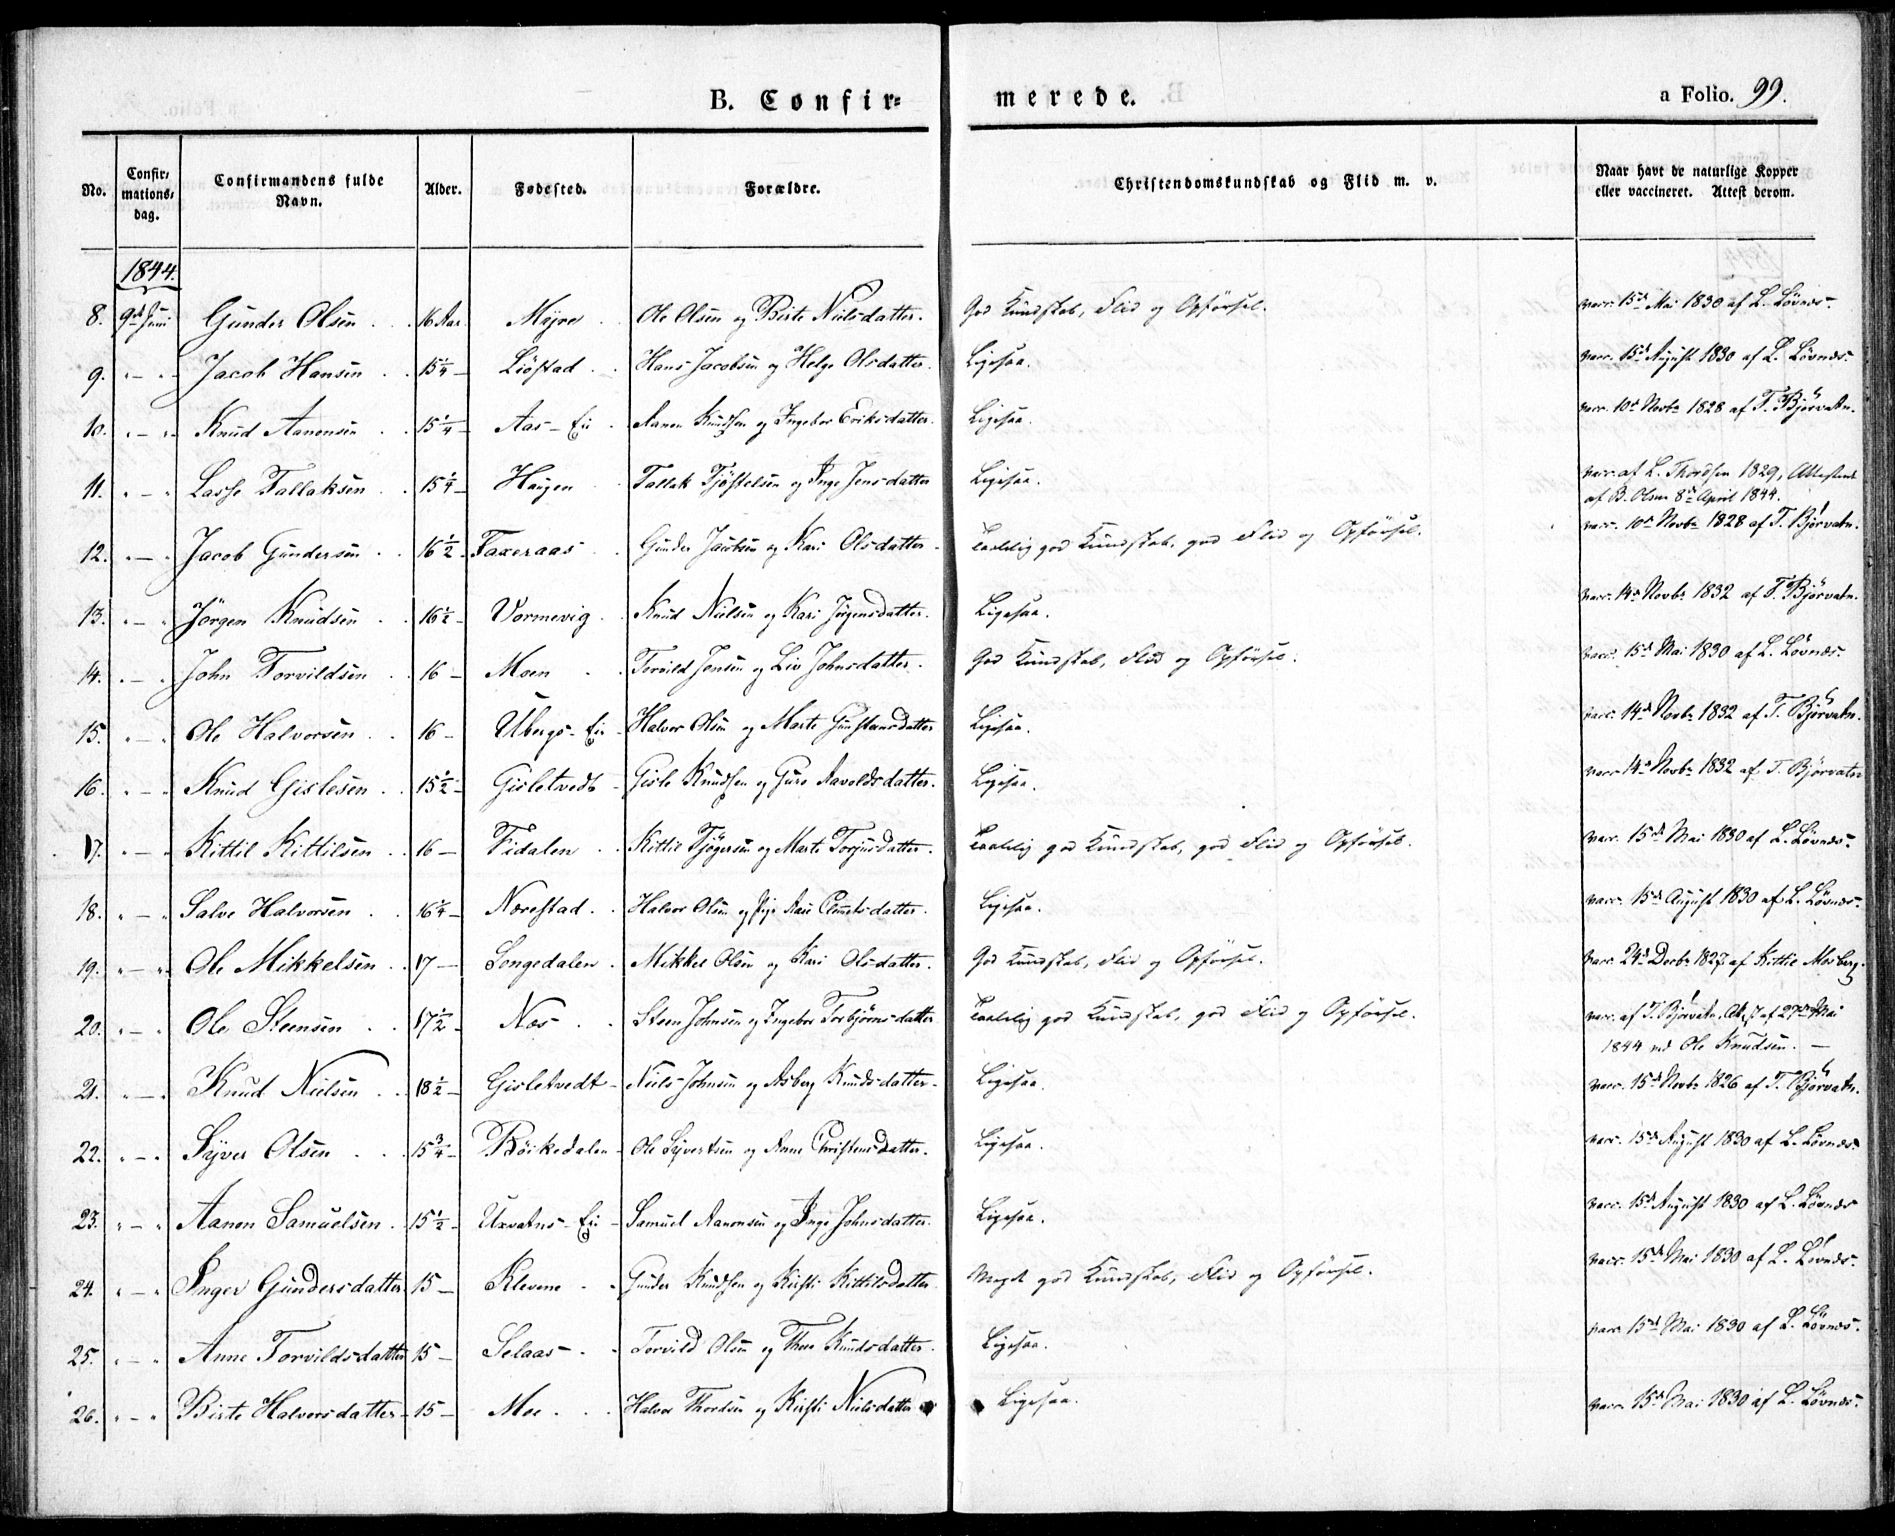 B. Confir=
merede.
a Folio. 99.
No. Confirmations-dag. Confirmandens fulde Navn. Alder. Fødested. Forældre. Christendomskundskab og Flid m. v. Naar havt de naturlige Kopper eller vaccineret. Attest derom.
1844.
8. 9de Juni Gunder Olsen 16 Aar Myre Ole Olsen og Birte Nielsdatter. God Kundskab, Flid og Opførsel. vacc. 15de Mai 1830 af L. Løvnæs.
9. " — " Jacob Hansen 15 1/4 — Liøstad Hans Jacobsen og Helge Olsdatter. Ligesaa. vacc. 15de August 1830 af L. Løvnæs.
10. " — " Knud Aanonsen 15 1/4 — Aas-Ei Aanon Knudsen og Ingebor Eriksdatter. Ligesaa. vacc. 10de Novbr 1828 af T. Bjørvatn.
11. " — " Lasse Tallaksen 15 1/4 — Haugen Tallak Tjøstelsen og Inge Jensdatter Ligesaa. vacc. af L. Thordsen 1829, Attesteret
af B. Olsen 8de April 1844.
12. " — " Jacob Gundersen 16 1/2 — Faxeraas Gunder Jacobsen og Kari Olsdatter Taalelig god Kundskab, god Flid og Opførsel. vacc. 10de Novbr 1828 af T. Bjørvatn.
13. " — " Jørgen Knudsen 16 1/2 — Vormevig Knud Nielsen og Kari Jørgensdatter. Ligesaa. vacc. 14de Novbr 1832 af T. Bjørvatn.
14. " — " John Torvildsen 16 — Moen Torvild Jensen og Liv Johnsdatter. God Kundskab, Flid og Opførsel. vacc. 15de Mai 1830 af L. Løvnæs.
15. " — " Ole Halvorsen 16 — Ubergs-Ei Halvor Olsen og Marte Gunstensdatter Ligesaa. vacc. 14de Novbr 1832 af T. Bjørvatn.
16. " — " Knud Gislesen 15 1/2 — Gisletvedt Gisle Knudsen og Guro Aavoldsdatter. Ligesaa. vacc. 14de Novbr 1832 af T. Bjørvatn
17. " — " Kittil Kittilsen 16 — Fidalen Kittil Tjøgersen og Marte Torjusdatter. Taalelig god Kundskab, god Flid og Opførsel. vacc. 15de Mai 1830 af L. Løvnæs.
18. " — " Salve Halvorsen 16 1/4 — Nærestad Halvor Olsen og Pige Aase Clemetsdatter. Ligesaa. vacc. 15de August 1830 af L. Løvnæs.
19. " — " Ole Mikkelsen 17 — Songedalen Mikkel Olsen og Kari Olsdatter. God Kundskab, Flid og Opførsel. vacc. 24de Decbr 1827 af Kittil Mosberg.
20. " — " Ole Steensen 17 1/2 — Næs Steen Johnsen og Ingebor Torbjørnsdatter Taalelig god Kundskab, god Flid og Opførsel. vacc. af T. Bjørvatn, Attest af 27de Mai
1844 ved Ole Knudsen. —
21. " — " Knud Nielsen 18 1/2 — Gisletvedt Niels Johnsen og Asberg Knudsdatter. Ligesaa. vacc. 15de Novbr 1826 af T. Bjørvatn.
22. " — " Syver Olsen 15 3/4 — Bøikedalen Ole Syvertsen og Anne Christensdatter. Ligesaa. vacc. 15de August 1830 af L. Løvnæs
23. " — " Aanon Samuelsen 15 1/2 — Uxvatns-Ei Samuel Aanonsen og Inge Johnsdatter. Ligesaa. vacc. 15de August 1830 af L. Løvnæs
24. " — " Inger Gundersdatter 15 — Klevene Gunder Knudsen og Kirsti Kittilsdatter Meget god Kundskab, Flid og Opførsel. vacc. 15de Mai 1830 af L. Løvnæs.
25. " — " Anne Torvildsdatter 15 — Selaas Torvild Olsen og Thore Knudsdatter. Ligesaa. vacc. 15de Mai 1830 af L. Løvnæs.
26. " — " Birte Halvorsdatter 15 — Moe Halvor Thordsen og Kirsti Nielsdatter Ligesaa. vacc. 15de Mai 1830 af L. Løvnæs.